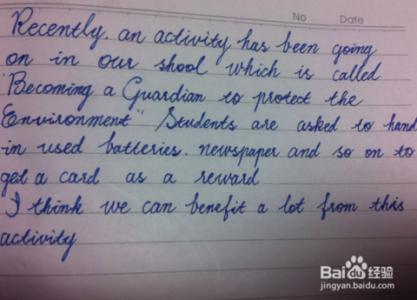 No Date
Recently. an activity has been going
on in our shool which is called
"Becoming a Guardian to protect the
Environment" Students are asked to hand
in used batteries. newspaper and so on to
get a card as a reward
I think we can benefit a lot from this
activity
Baidu经验
jingyan.baidu.com